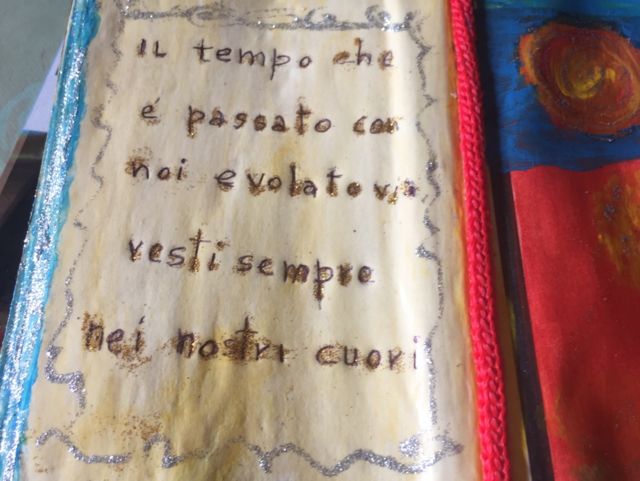 IL tempo che
é passato con
noi e volato via
resti sempre
nei nostri cuori